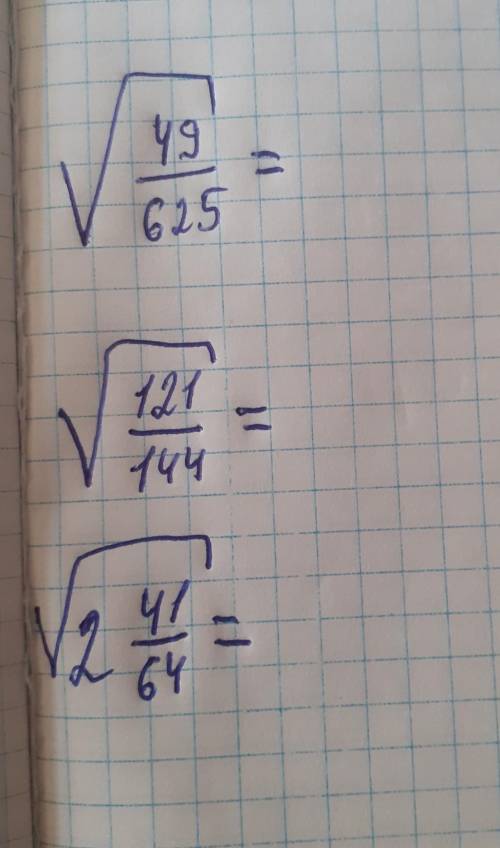 √(49/625) =
√(121/144) =
√(2 41/64) =